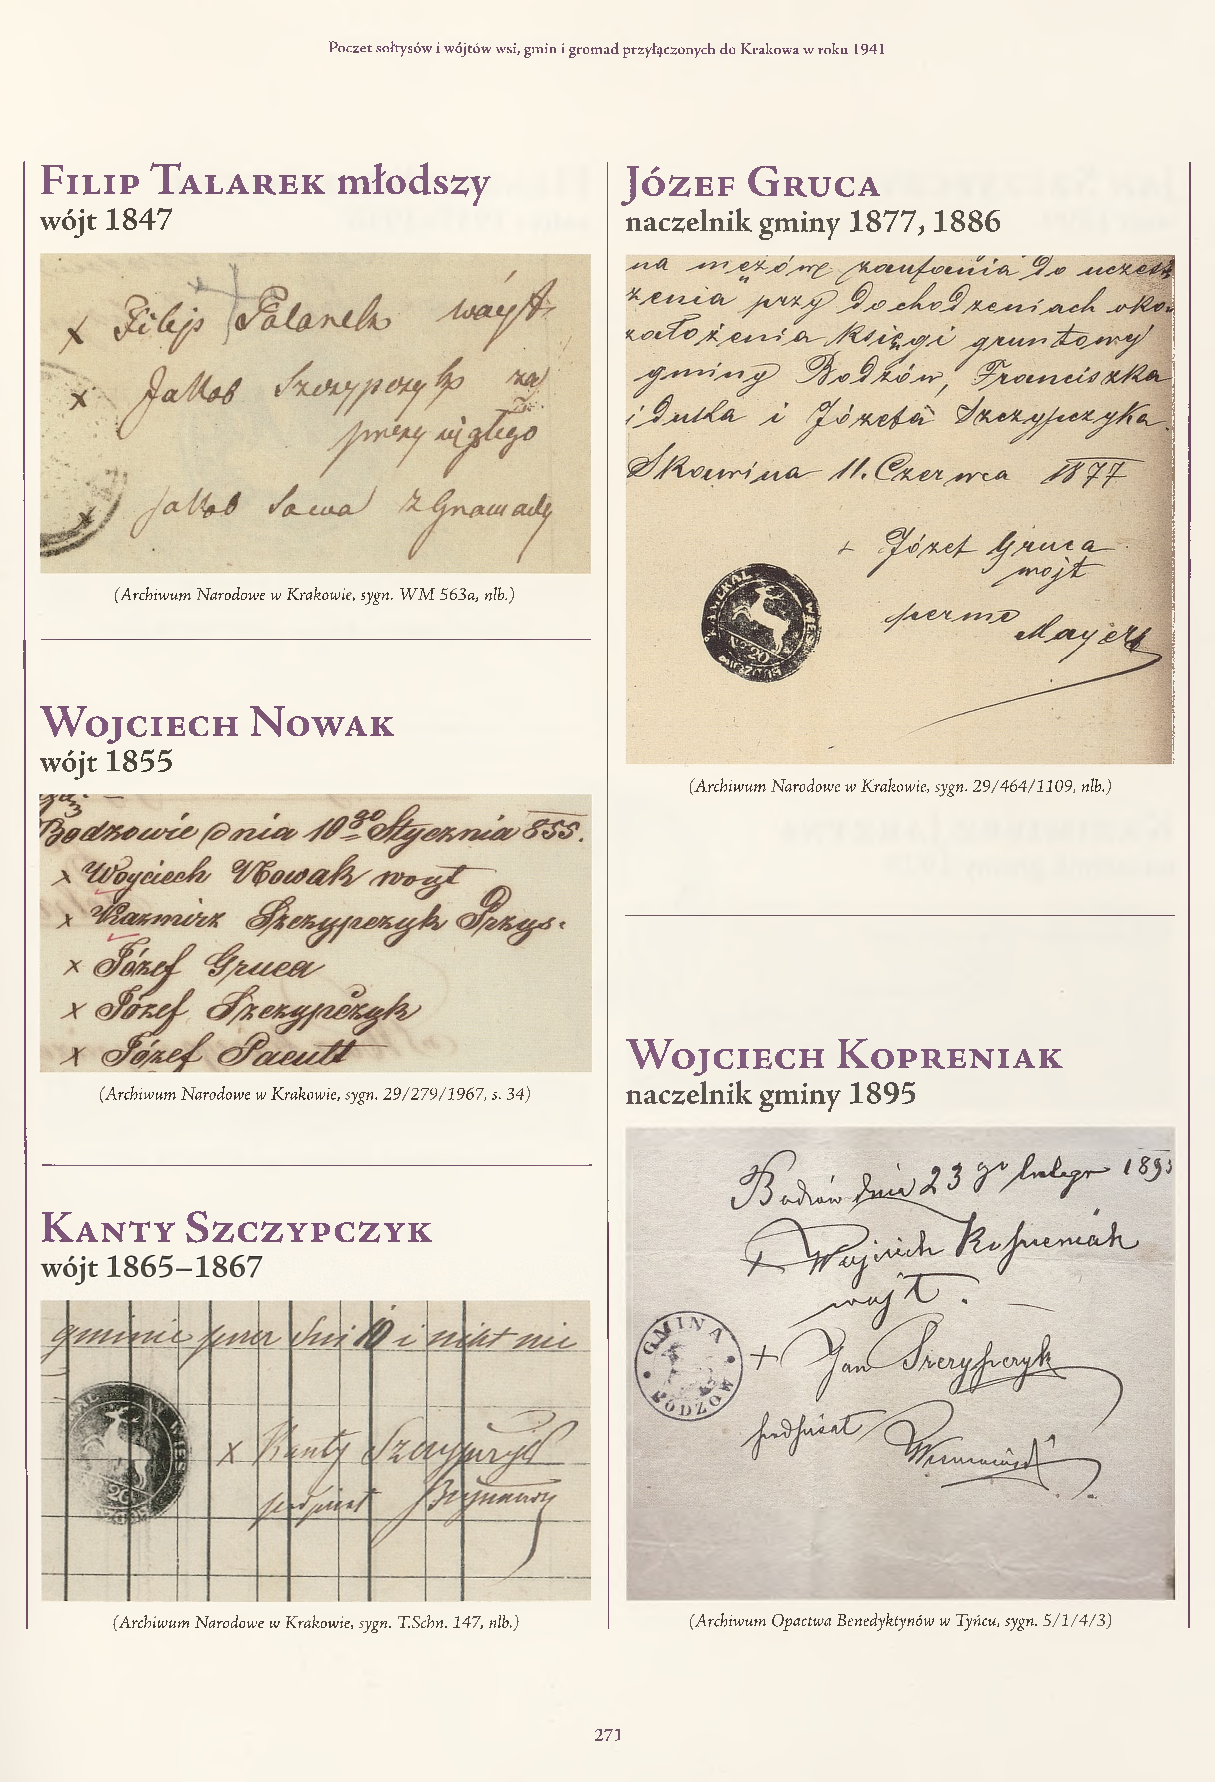 Poczet sołtysów i wójtów wsi, gmin i gromad przyłączonych do Krakowa w roku 1941
Filip Talarek młodszy
wójt 1847
x Filip Talarek wóyt
x Jakób Szczypczyk za
przysięgłego
x Jakób Sowa z Gromady
(Archiwum Narodowe w Krakowie, sygn. WM 563a, nlb.)
Wojciech Nowak
wójt 1855
Bodzowie dnia 10go Stycznia 855.
x Woyciech Nowak woyt
x Kazmirz Szczypczyk Przys.
x Józef Gruca
x Józef Szczypczyk
x Józef Pacult
(Archiwum Narodowe w Krakowie, sygn. 29/279/1967, s. 34)
Kanty Szczypczyk
wójt 1865–1867
gminie przez dni 10 i nikt nie
x Kanty Szczypczyk
podpisał
(Archiwum Narodowe w Krakowie, sygn. T.Schn. 147, nlb.)
Józef Gruca
naczelnik gminy 1877, 1886
na mężów zaufania do uczest
zenia przy dochodzeniach oko
założenia księgi gruntowy
gminy Bodzów, Franciszka
i Duda i Józefa Szczypczyka.
Skawina 11. Czerwca 1877
+ Józef Gruca
wojt
Mayer
KAMERAL WIES
No 20
(Archiwum Narodowe w Krakowie, sygn. 29/464/1109, nlb.)
Wojciech Kopreniak
naczelnik gminy 1895
Bodzów dnia 23go lutego 1895
+ Wojciech Kopreniak
wojt.
+ Jan Szczypczyk
podpisał
GMINA
BODZÓW
(Archiwum Opactwa Benedyktynów w Tyńcu, sygn. 5/1/4/3)
271